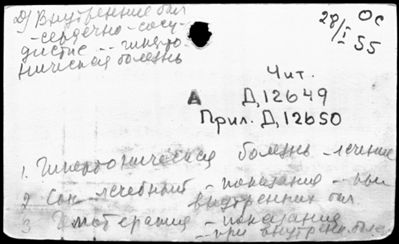 Д) Внутренние бол
- сердечно-сосу-
дистые -- гиперто-
ническая болезнь
ОС
28/I 55
Чит.
А Д,12649
Прил. Д,12650
1. Гипертоническая болезнь - лечение
2 Сон лечебный - показания - при
внутренних бол
3 - показания
- при внутрен. бол.